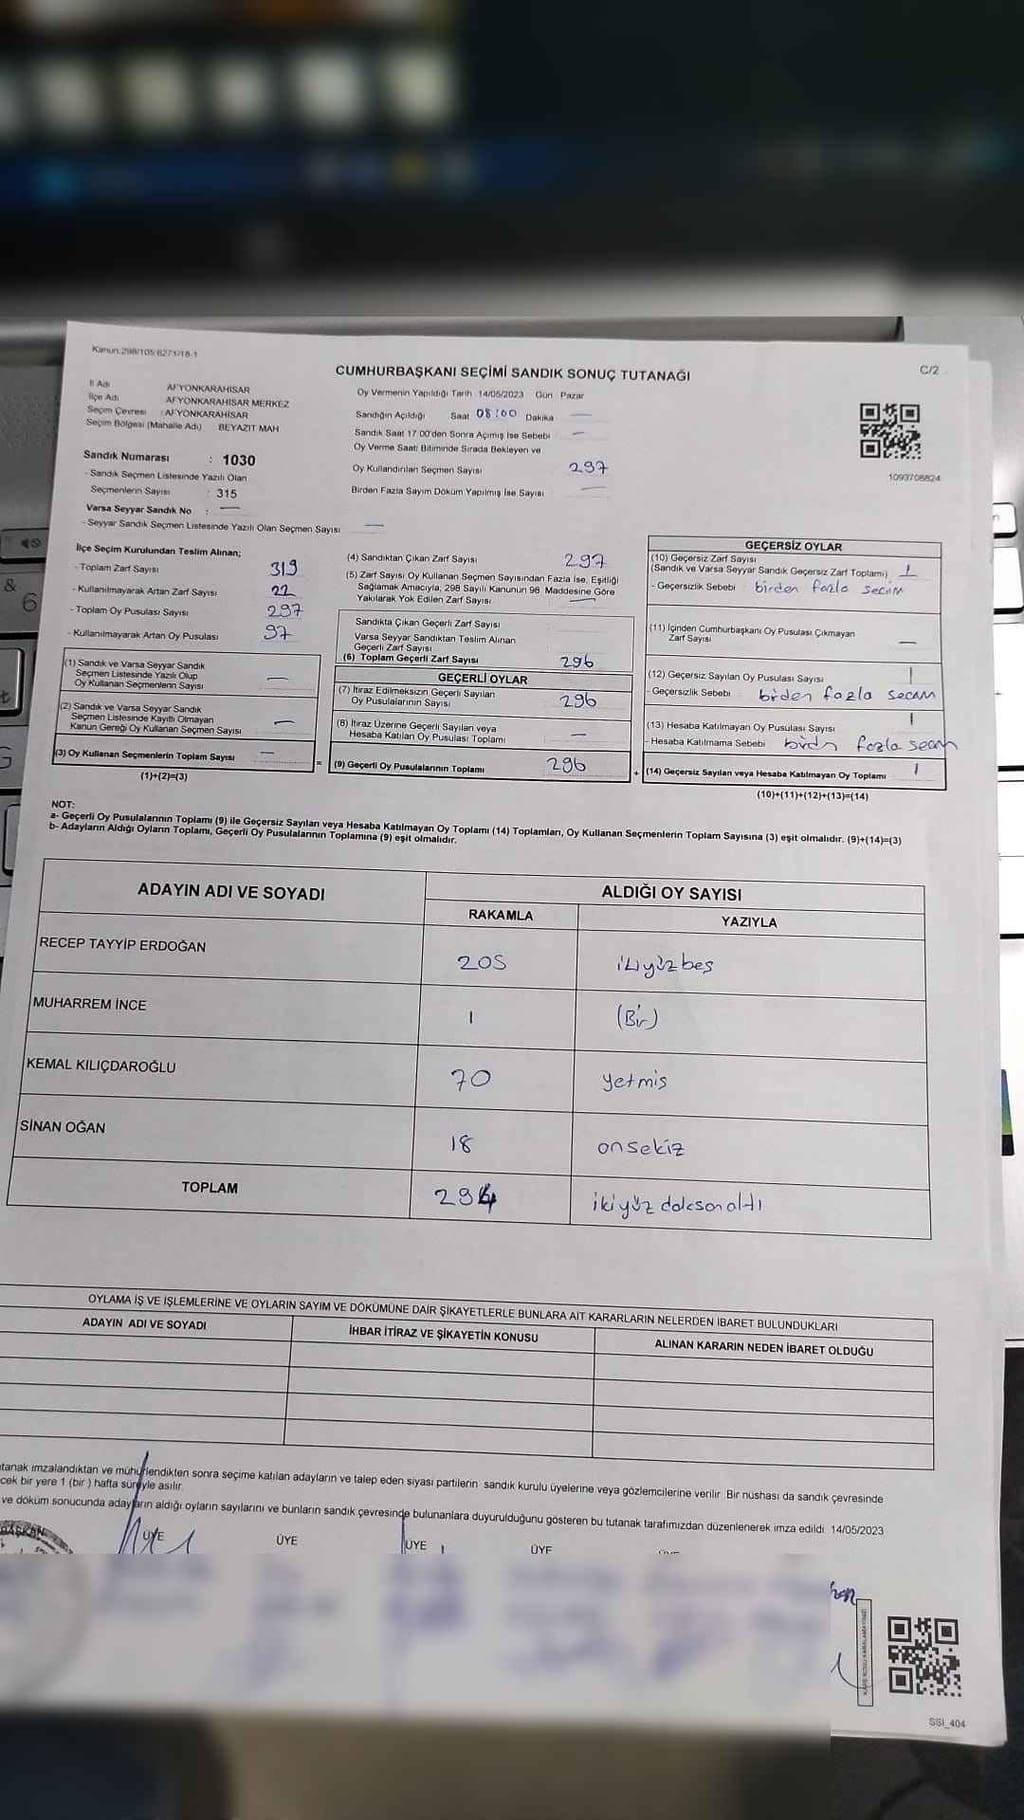 Kanun:298/105:6271/18-1
CUMHURBAŞKANI SEÇİMİ SANDIK SONUÇ TUTANAĞI
C/2
İl Adı AFYONKARAHİSAR
İlçe Adı AFYONKARAHİSAR MERKEZ
Seçim Çevresi : AFYONKARAHİSAR
Seçim Bölgesi (Mahalle Adı) BEYAZIT MAH
Oy Vermenin Yapıldığı Tarih 14/05/2023 Gün Pazar
Sandığın Açıldığı Saat 08:00 Dakika —
Sandık Saat 17.00'den Sonra Açımış İse Sebebi —
Oy Verme Saati Bitiminde Sırada Bekleyen ve
Oy Kullandırılan Seçmen Sayısı 297
Birden Fazla Sayım Döküm Yapılmış İse Sayısı —
1093708824
Sandık Numarası : 1030
- Sandık Seçmen Listesinde Yazılı Olan
Seçmenlerin Sayısı : 315
Varsa Seyyar Sandık No : —
- Seyyar Sandık Seçmen Listesinde Yazılı Olan Seçmen Sayısı —
İlçe Seçim Kurulundan Teslim Alınan;
- Toplam Zarf Sayısı 319
- Kullanılmayarak Artan Zarf Sayısı 22
- Toplam Oy Pusulası Sayısı 297
- Kullanılmayarak Artan Oy Pusulası 97
(1) Sandık ve Varsa Seyyar Sandık
Seçmen Listesinde Yazılı Olup
Oy Kullanan Seçmenlerin Sayısı —
(2) Sandık ve Varsa Seyyar Sandık
Seçmen Listesinde Kayıtlı Olmayan
Kanun Gereği Oy Kullanan Seçmen Sayısı —
(3) Oy Kullanan Seçmenlerin Toplam Sayısı —
(1)+(2)=(3)
(4) Sandıktan Çıkan Zarf Sayısı 297
(5) Zarf Sayısı Oy Kullanan Seçmen Sayısından Fazla İse, Eşitliği
Sağlamak Amacıyla, 298 Sayılı Kanunun 98. Maddesine Göre
Yakılarak Yok Edilen Zarf Sayısı —
Sandıkta Çıkan Geçerli Zarf Sayısı
Varsa Seyyar Sandıktan Teslim Alınan
Geçerli Zarf Sayısı
(6) Toplam Geçerli Zarf Sayısı 296
GEÇERLİ OYLAR
(7) İtiraz Edilmeksizin Geçerli Sayılan
Oy Pusulalarının Sayısı 296
(8) İtiraz Üzerine Geçerli Sayılan veya
Hesaba Katılan Oy Pusulası Toplamı —
(9) Geçerli Oy Pusulalarının Toplamı 296
GEÇERSİZ OYLAR
(10) Geçersiz Zarf Sayısı
(Sandık ve Varsa Seyyar Sandık Geçersiz Zarf Toplamı) 1
- Geçersizlik Sebebi birden fazla secim
(11) İçinden Cumhurbaşkanı Oy Pusulası Çıkmayan
Zarf Sayısı —
(12) Geçersiz Sayılan Oy Pusulası Sayısı 1
- Geçersizlik Sebebi birden fazla secam
(13) Hesaba Katılmayan Oy Pusulası Sayısı 1
- Hesaba Katılmama Sebebi birdn fazla secam
(14) Geçersiz Sayılan veya Hesaba Katılmayan Oy Toplamı 1
(10)+(11)+(12)+(13)=(14)
NOT:
a- Geçerli Oy Pusulalarının Toplamı (9) ile Geçersiz Sayılan veya Hesaba Katılmayan Oy Toplamı (14) Toplamları, Oy Kullanan Seçmenlerin Toplam Sayısına (3) eşit olmalıdır. (9)+(14)=(3)
b- Adayların Aldığı Oyların Toplamı, Geçerli Oy Pusulalarının Toplamına (9) eşit olmalıdır.
ADAYIN ADI VE SOYADI ALDIĞI OY SAYISI
RAKAMLA YAZIYLA
RECEP TAYYİP ERDOĞAN 205 ikiyüzbeş
MUHARREM İNCE 1 (Bir)
KEMAL KILIÇDAROĞLU 70 yetmis
SİNAN OĞAN 18 onsekiz
TOPLAM 294 ikiyüz doksanaltı
OYLAMA İŞ VE İŞLEMLERİNE VE OYLARIN SAYIM VE DÖKÜMÜNE DAİR ŞİKAYETLERLE BUNLARA AİT KARARLARIN NELERDEN İBARET BULUNDUKLARI
ADAYIN ADI VE SOYADI İHBAR İTİRAZ VE ŞİKAYETİN KONUSU ALINAN KARARIN NEDEN İBARET OLDUĞU
tanak imzalandıktan ve mühürlendikten sonra seçime katılan adayların ve talep eden siyasi partilerin sandık kurulu üyelerine veya gözlemcilerine verilir. Bir nüshası da sandık çevresinde
cek bir yere 1 (bir) hafta süreyle asılır.
ve döküm sonucunda adayların aldığı oyların sayılarını ve bunların sandık çevresinde bulunanlara duyurulduğunu gösteren bu tutanak tarafımızdan düzenlenerek imza edildi. 14/05/2023
BAŞKAN ÜYE ÜYE ÜYE ÜYE
SSI_404